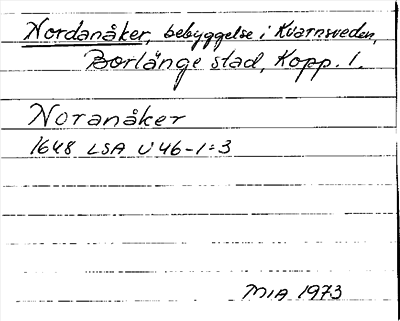 Nordanåker, bebyggelse i Kvarnsveden,
Borlänge stad, Kopp. l.
Noranåker
1648 LSA U 46-1:3
MIA 1973